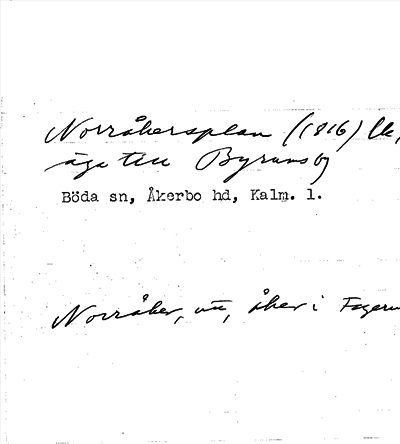 Norråkersplan (1816) lk,
äga till Byrums by
Böda sn, Åkerbo hd, Kalm. l.
Norråker, åker i